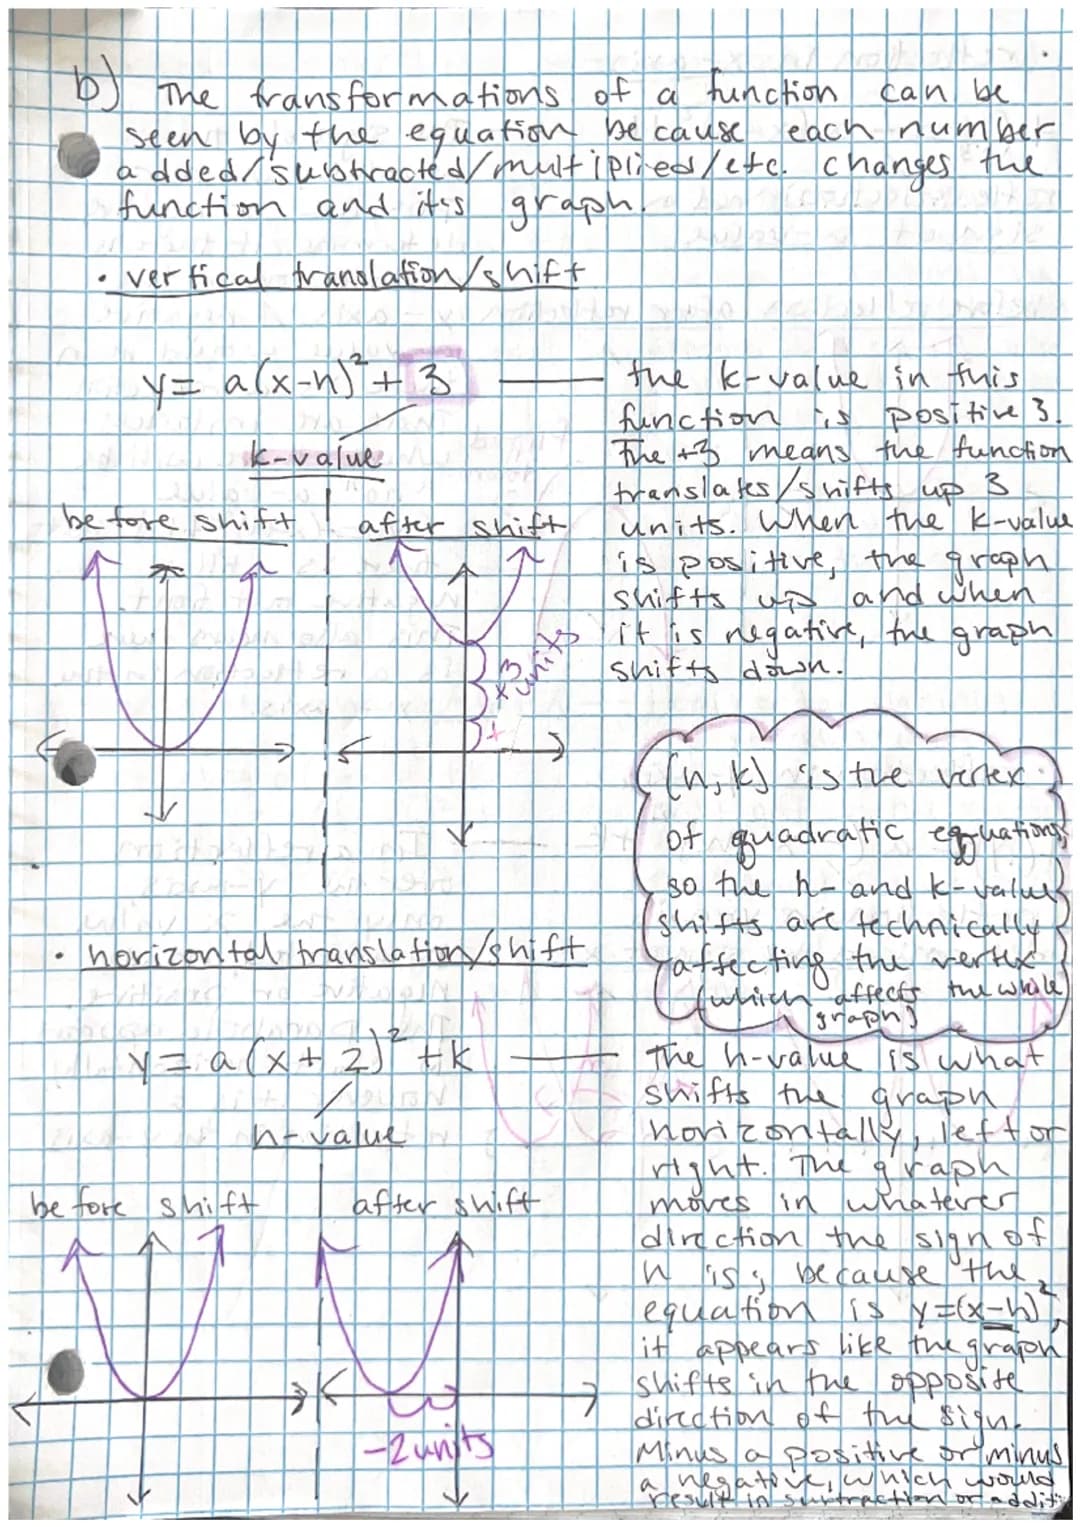 b) The transformations of a function can be
seen by the equation because each number
added/subtracted/multiplied/etc. changes the
function and it's graph.
• vertical translation/shift
y = a(x-h)² + 3
k-value
the k-value in this
function is positive 3.
The +3 means the function
translates/shifts up 3
units. When the k-value
is positive, the graph
shifts up and when
it is negative, the graph
shifts down.
before shift
after shift
+3 units
(h, k) is the vertex
of quadratic equations,
so the h- and k-value
shifts are technically
affecting the vertex
(which affects the whole
graph)
• horizontal translation/shift
y = a(x+2)² + k
h-value
The h-value is what
shifts the graph
horizontally, left or
right. The graph
moves in whatever
direction the sign of
h is; because the
equation is y=(x-h)²,
it appears like the graph
shifts in the opposite
direction of the sign.
Minus a positive or minus
a negative, which would
result in subtraction or addit
before shift
after shift
-2 units